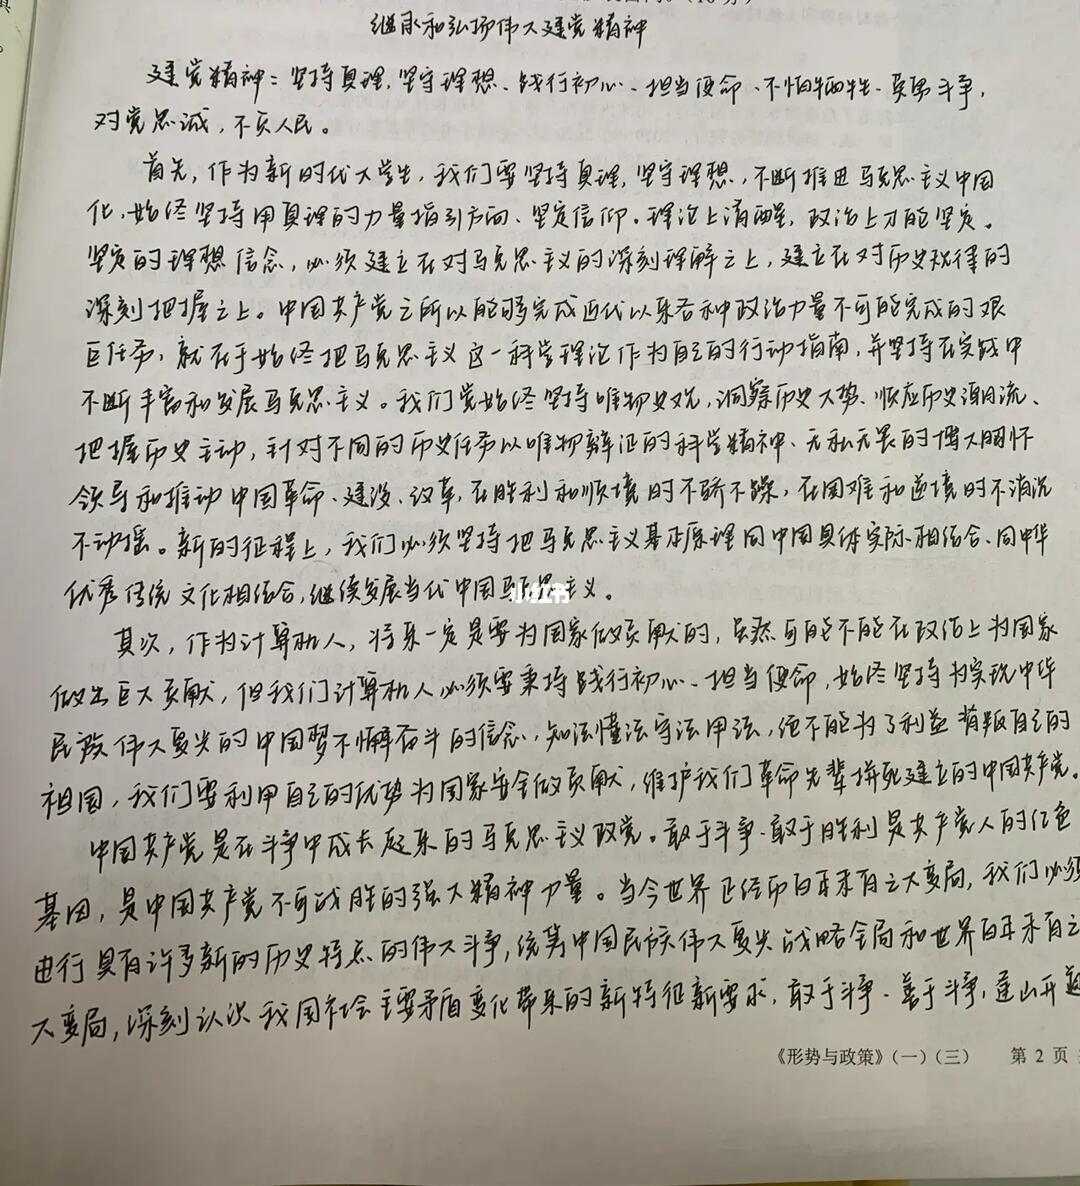 继承和弘扬伟大建党精神
建党精神：坚持真理、坚守理想、践行初心、担当使命、不怕牺牲、英勇斗争，
对党忠诚，不负人民。
首先，作为新时代大学生，我们要坚持真理，坚守理想，不断推进马克思主义中国
化，始终坚持用真理的力量指引方向、坚定信仰。理论上清醒，政治上才能坚定。
坚定的理想信念，必须建立在对马克思主义的深刻理解之上，建立在对历史规律的
深刻把握之上。中国共产党之所以能够完成近代以来各种政治力量不可能完成的艰
巨任务，就在于始终把马克思主义这一科学理论作为自己的行动指南，并坚持在实践中
不断丰富和发展马克思主义。我们党始终坚持唯物史观，洞察历史大势、顺应历史潮流、
把握历史主动，针对不同的历史任务以唯物辩证的科学精神、无私无畏的博大胸怀
领导和推动中国革命、建设、改革，在胜利和顺境时不骄不躁，在困难和逆境时不消沉
不动摇。新的征程上，我们必须坚持把马克思主义基本原理同中国具体实际相结合、同中华
优秀传统文化相结合，继续发展当代中国马克思主义。
小红书
其次，作为计算机人，将来一定是要为国家做贡献的，虽然可能不能在政治上为国家
做出巨大贡献，但我们计算机人必须要秉持践行初心、担当使命，始终坚持为实现中华
民族伟大复兴的中国梦不懈奋斗的信念，知法懂法守法用法，绝不能为了利益背叛自己的
祖国，我们要利用自己的优势为国家安全做贡献，维护我们革命先辈拼死建立的中国共产党。
中国共产党是在斗争中成长起来的马克思主义政党。敢于斗争、敢于胜利是共产党人的红色
基因，是中国共产党不可战胜的强大精神力量。当今世界正经历百年未有之大变局，我们必须
进行具有许多新的历史特点的伟大斗争，统筹中国民族伟大复兴战略全局和世界百年未有之
大变局，深刻认识我国社会主要矛盾变化带来的新特征新要求，敢于斗争、善于斗争，逢山开
《形势与政策》（一）（三） 第 2 页